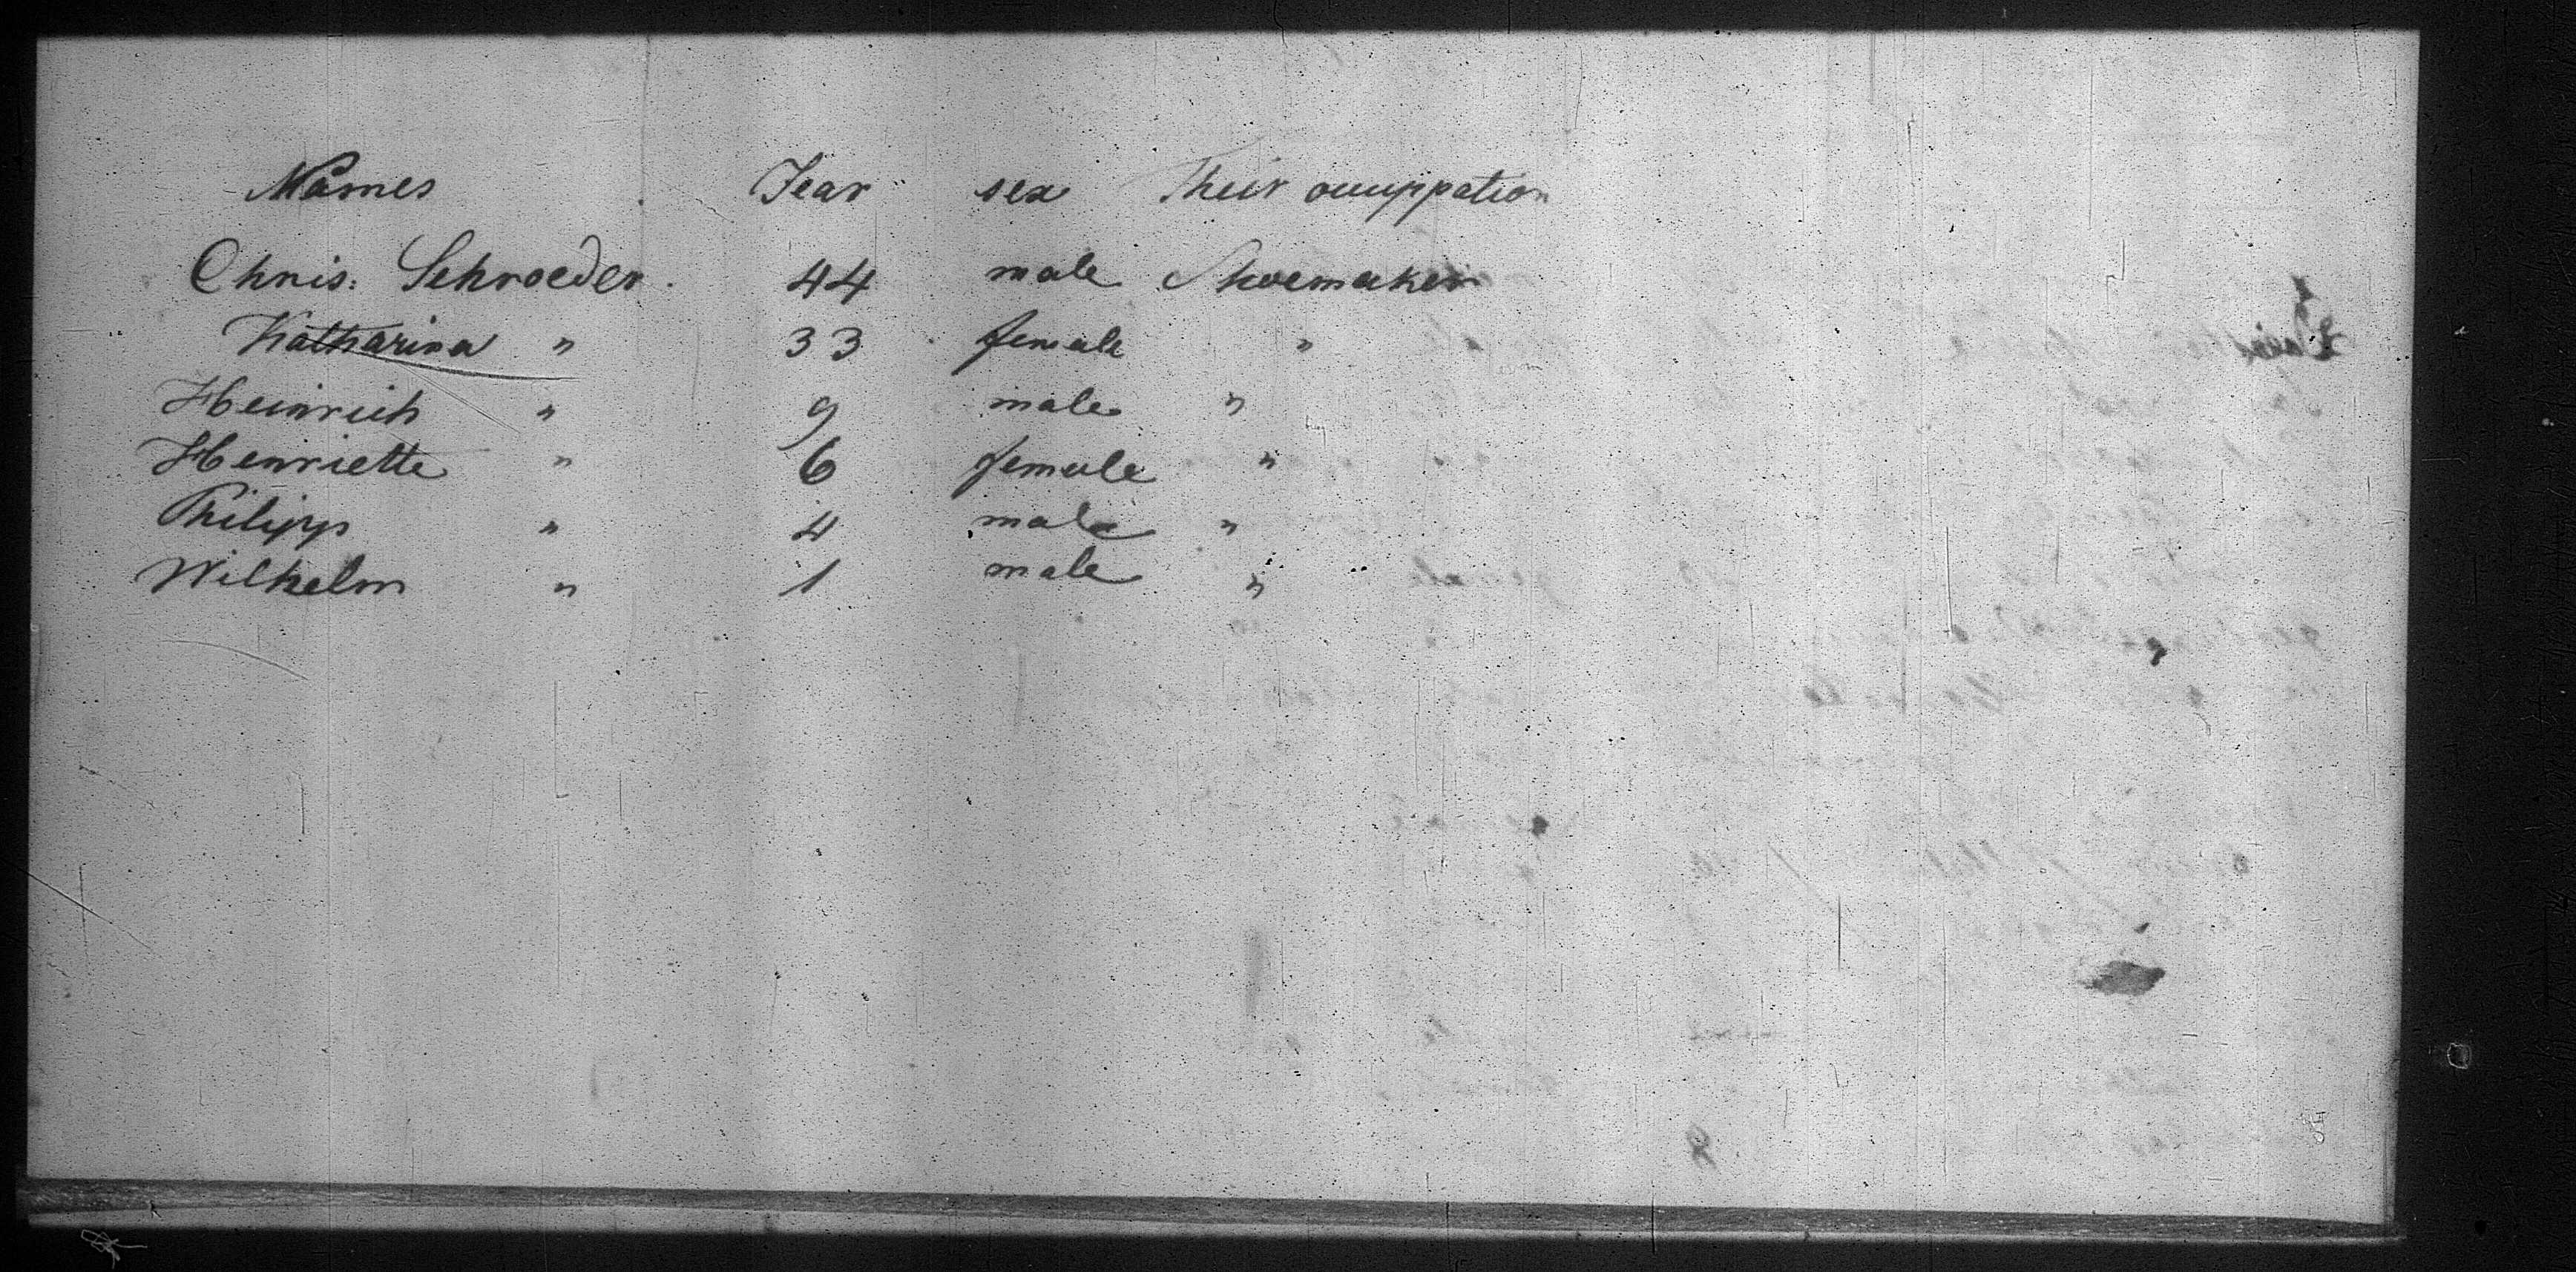 Names Year sex Their ocuppation
Chris: Schroeder. 44 male Shoemaker
Katharina " 33 female "
Heinrich " 9 male "
Henriette " 6 female "
Philipp " 4 male "
Wilhelm " 1 male "